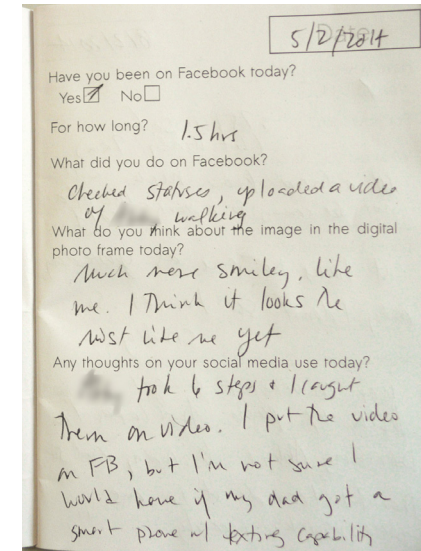 5/2/2014
Have you been on Facebook today?
Yes No
For how long? 1.5 hrs
What did you do on Facebook?
Checked statuses, uploaded a video
of walking
What do you think about the image in the digital
photo frame today?
Much more smiley, like
me. I think it looks the
most like me yet
Any thoughts on your social media use today?
took 6 steps & I caught
them on video. I put the video
on FB, but I'm not sure I
would have if my dad got a
smart phone w/ texting capability